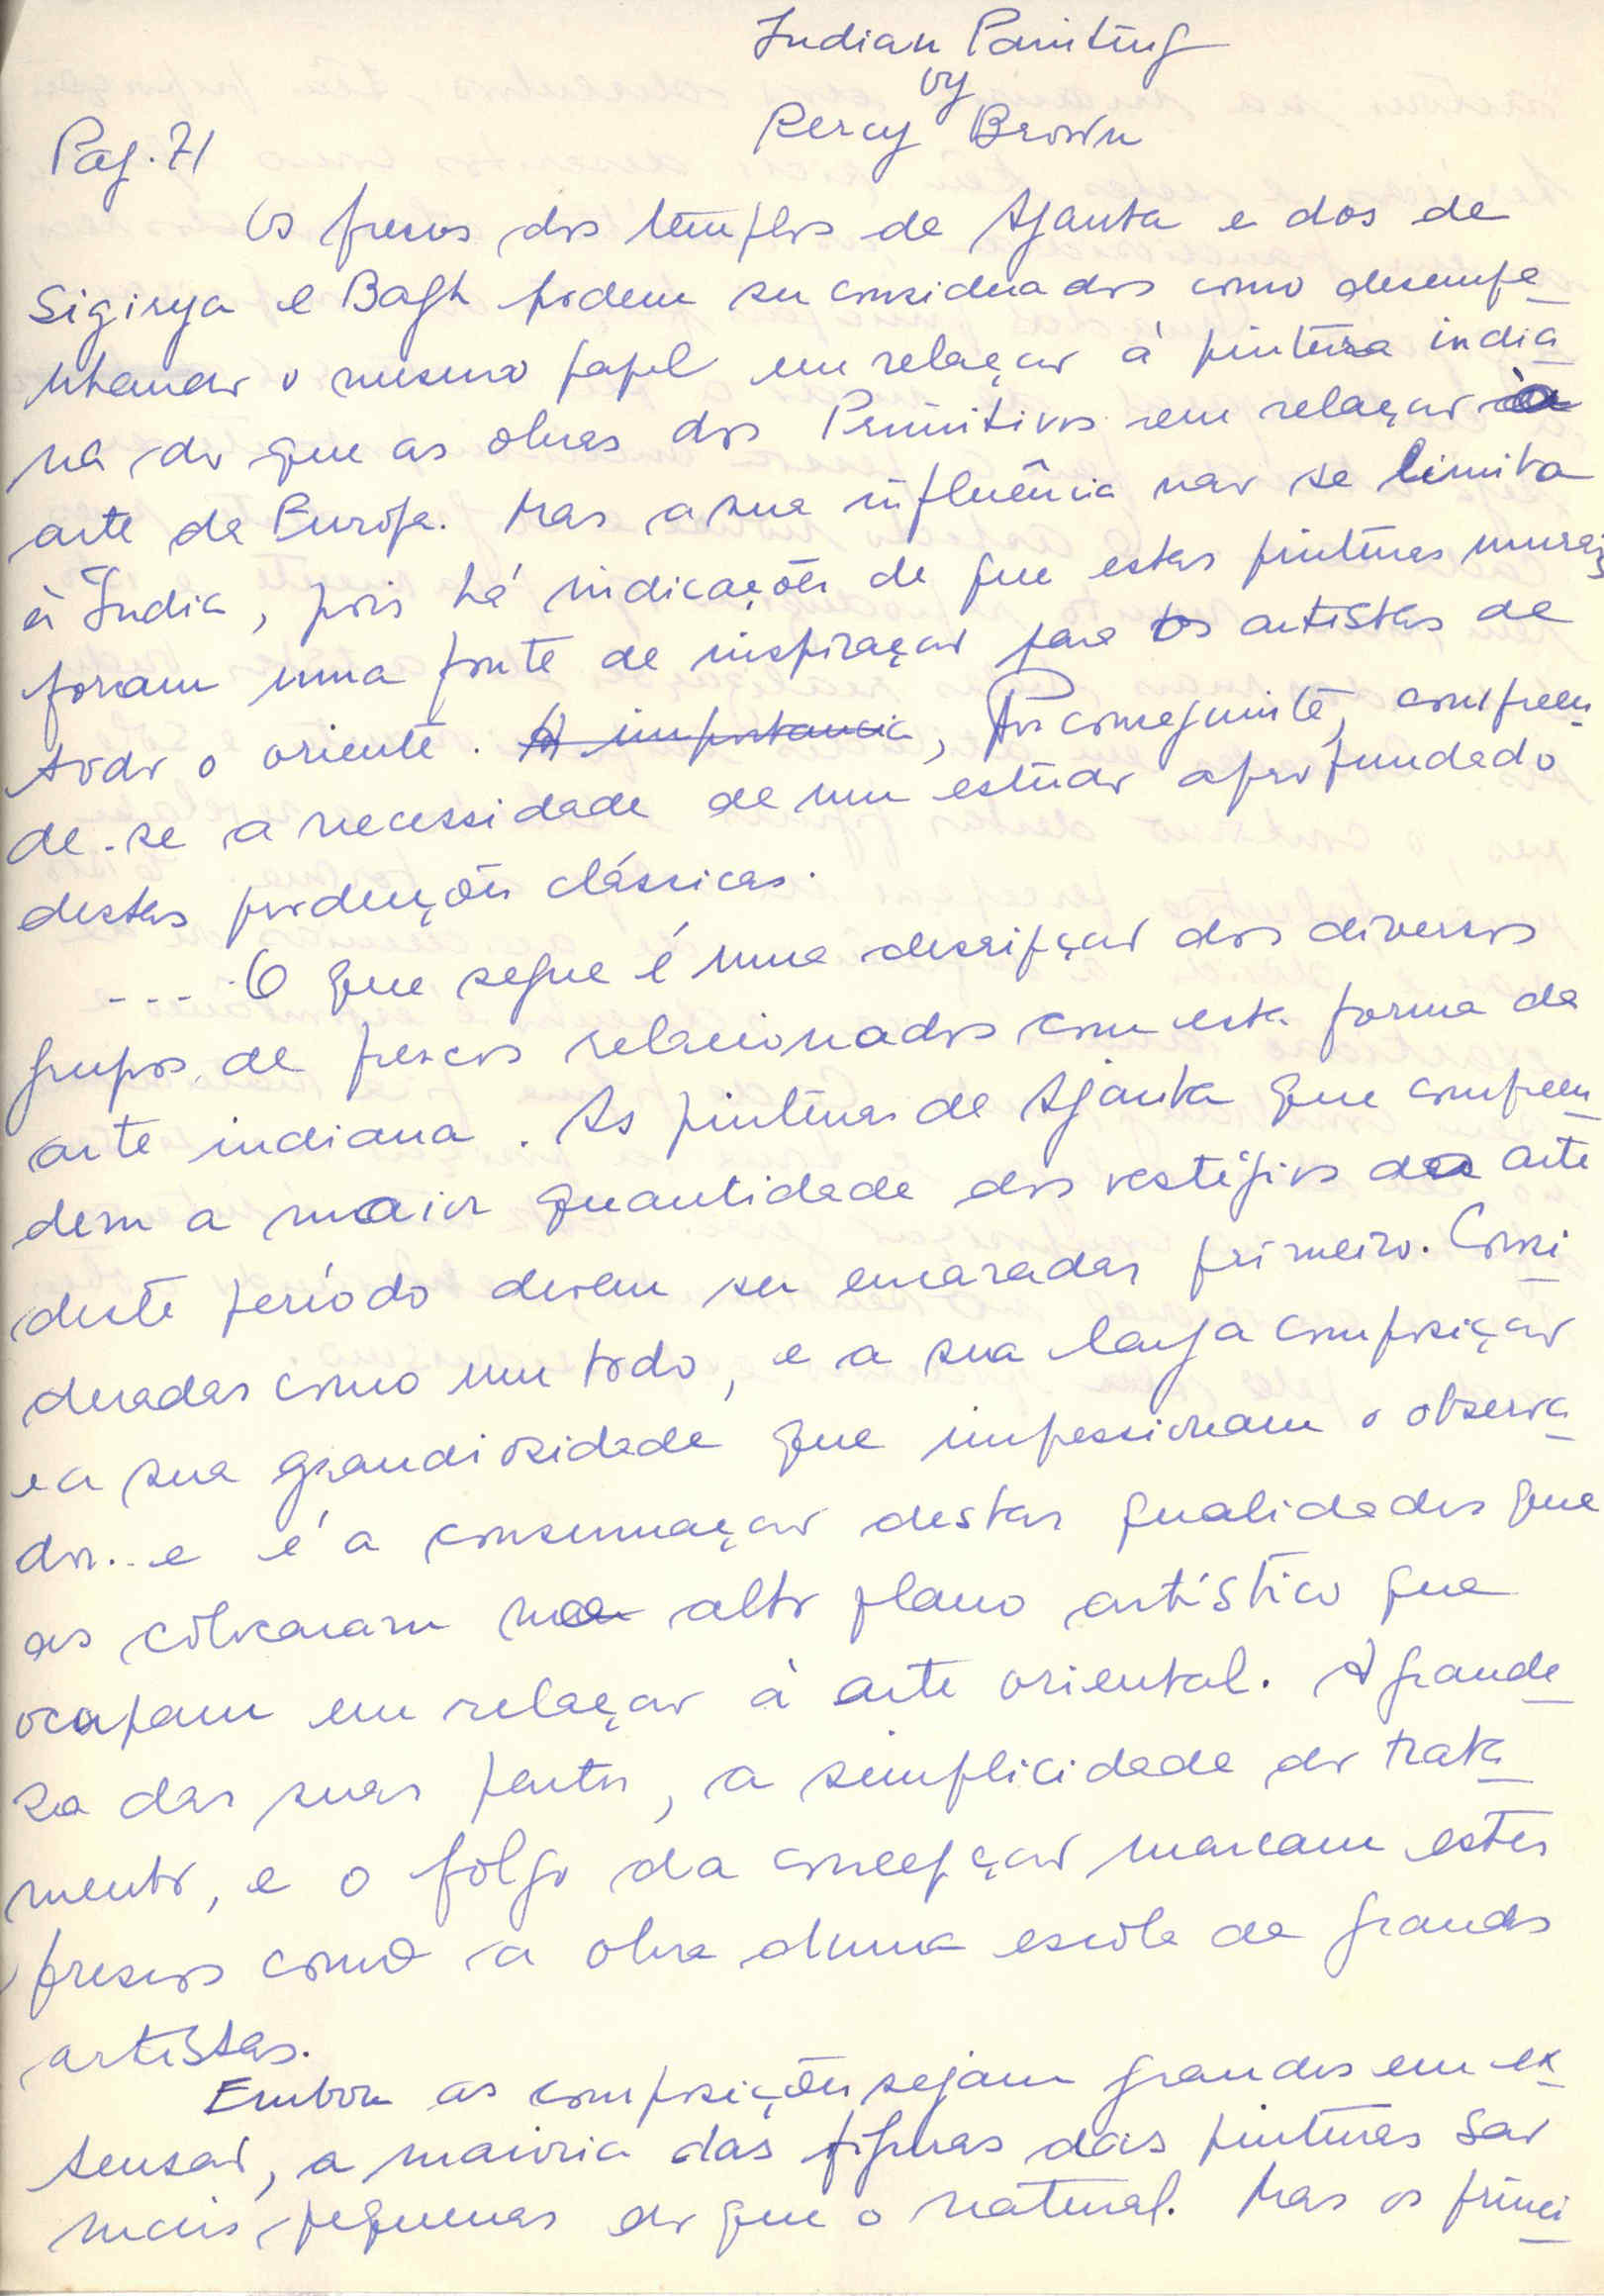 Indian Painting
by
Percy Brown
Pag. 71
Os frescos dos templos de Ajanta e dos de
Sigirya e Bagh podem ser considerados como desempe
nhando o mesmo papel em relação à pintura india
na do que as obras dos Primitivos em relação à
arte da Europa. Mas a sua influência não se limita
à India, pois há indicações de que estas pinturas murais
foram uma fonte de inspiração para os artistas de
todo o oriente. A importancia, Por conseguinte, compreen
de-se a necessidade de um estudo aprofundado
destas produções clássicas.
---- O que segue é uma descripção dos diversos
grupos de frescos relacionados com esta forma de
arte indiana. As pinturas de Ajanta que compreen
dem a maior quantidade dos vestígios da arte
deste período devem ser encaradas primeiro. Consi
deradas como um todo, e a sua larga composição
e a sua grandiosidade que impressionam o observa
dor.. e é a consumação destas qualidades que
as colocaram no alto plano artístico que
ocupam em relação à arte oriental. A grande
za das suas partes, a simplicidade do trata
mento, e o folgo da concepção marcam estes
frescos como a obra duma escola de grandes
artistas.
Embora as composições sejam grandes em ex
tensão, a maioria das figuras das pinturas são
mais pequenas do que o natural. Mas os princi